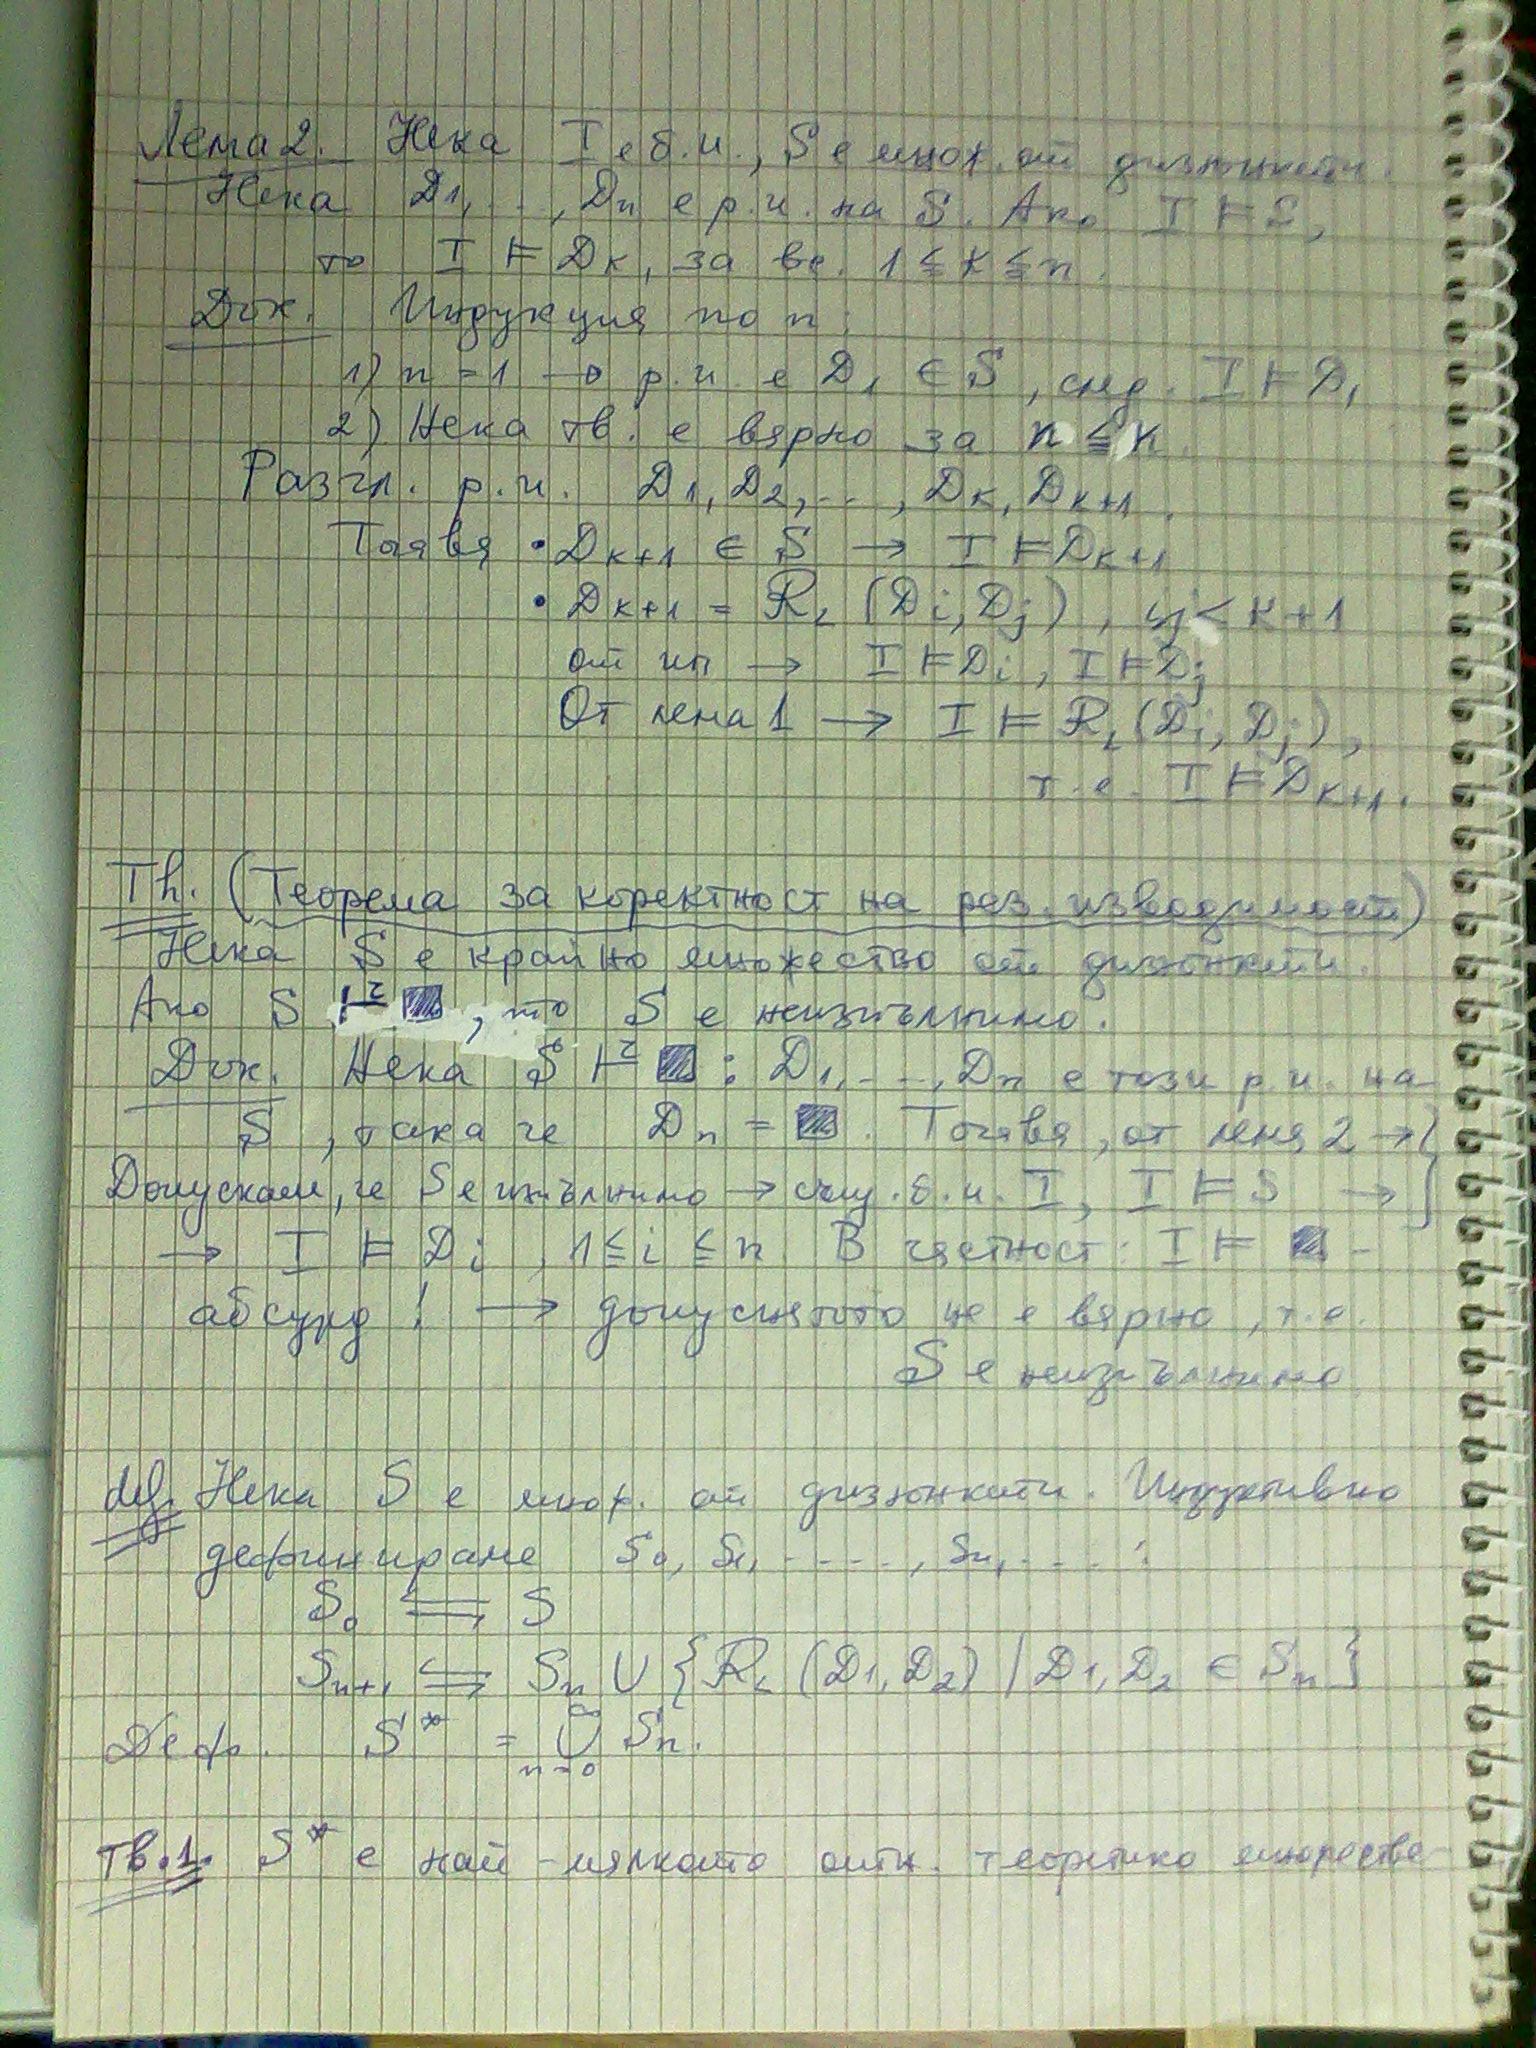 Лема 2. Нека I е б.и., S е множ. от дизюнкти.
Нека D₁, ..., Dₙ е р.и. на S. Ако I ⊨ S,
то I ⊨ Dₖ, за вс. 1 ≦ k ≦ n.
Док. Индукция по n:
1) n = 1 → р.и. е D₁ ∈ S, след. I ⊨ D₁
2) Нека тв. е вярно за n ≦ k.
Разгл. р.и. D₁, D₂, ..., Dₖ, Dₖ₊₁.
Тогава • Dₖ₊₁ ∈ S → I ⊨ Dₖ₊₁
• Dₖ₊₁ = R_L (Dᵢ, Dⱼ), i,j < k+1
от ип → I ⊨ Dᵢ, I ⊨ Dⱼ
От лема 1 → I ⊨ R_L (Dᵢ, Dⱼ),
т.е. I ⊨ Dₖ₊₁.
Th. (Теорема за коректност на рез. изводимост)
Нека S е крайно множество от дизюнкти.
Ако S ⊢ʳ ■, то S е неизпълнимо.
Док. Нека S ⊢ʳ ■ : D₁, ..., Dₙ е този р.и. на
S, така че Dₙ = ■. Тогава, от лема 2 → }
Допускам, че S е изпълнимо → същ. б.и. I, I ⊨ S →
→ I ⊨ Dᵢ, 1 ≦ i ≦ n. В частност: I ⊨ ■ -
абсурд! → допуснатото не е вярно, т.е.
S е неизпълнимо
def. Нека S е множ. от дизюнкти. Индуктивно
дефинираме S₀, S₁, ....., Sₙ, .... :
S₀ ⇌ S
Sₙ₊₁ ⇌ Sₙ ∪ {R_L (D₁, D₂) | D₁, D₂ ∈ Sₙ}
Деф. S* = ⋃_{n=0}^{∞} Sₙ.
Тв.1. S* е най-малкото отн. теоретико множестве